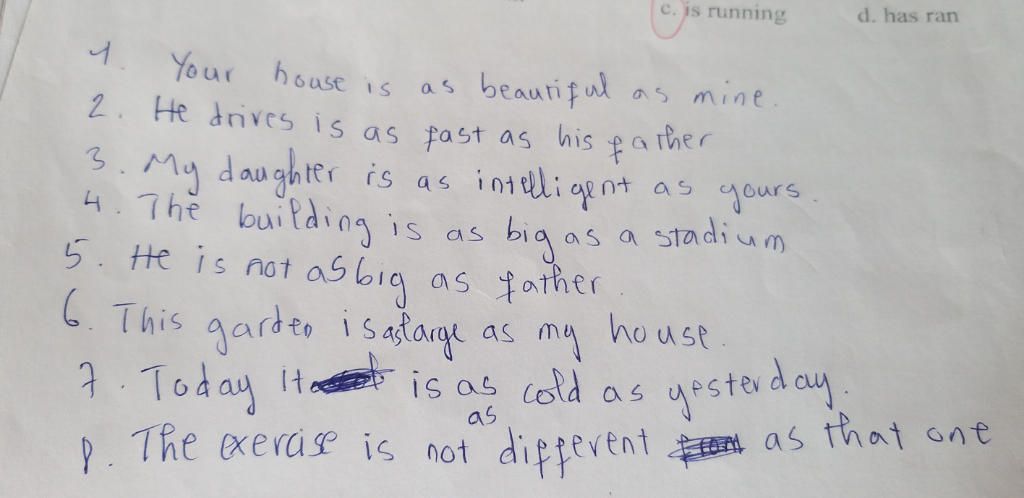 c. is running d. has ran
1. Your house is as beautiful as mine.
2. He drives is as fast as his father
3. My daughter is as intelligent as yours.
4. The building is as big as a stadium
5. He is not as big as father.
6. This garden is as large as my house.
7. Today it is as cold as yesterday.
as
8. The exercise is not different as that one